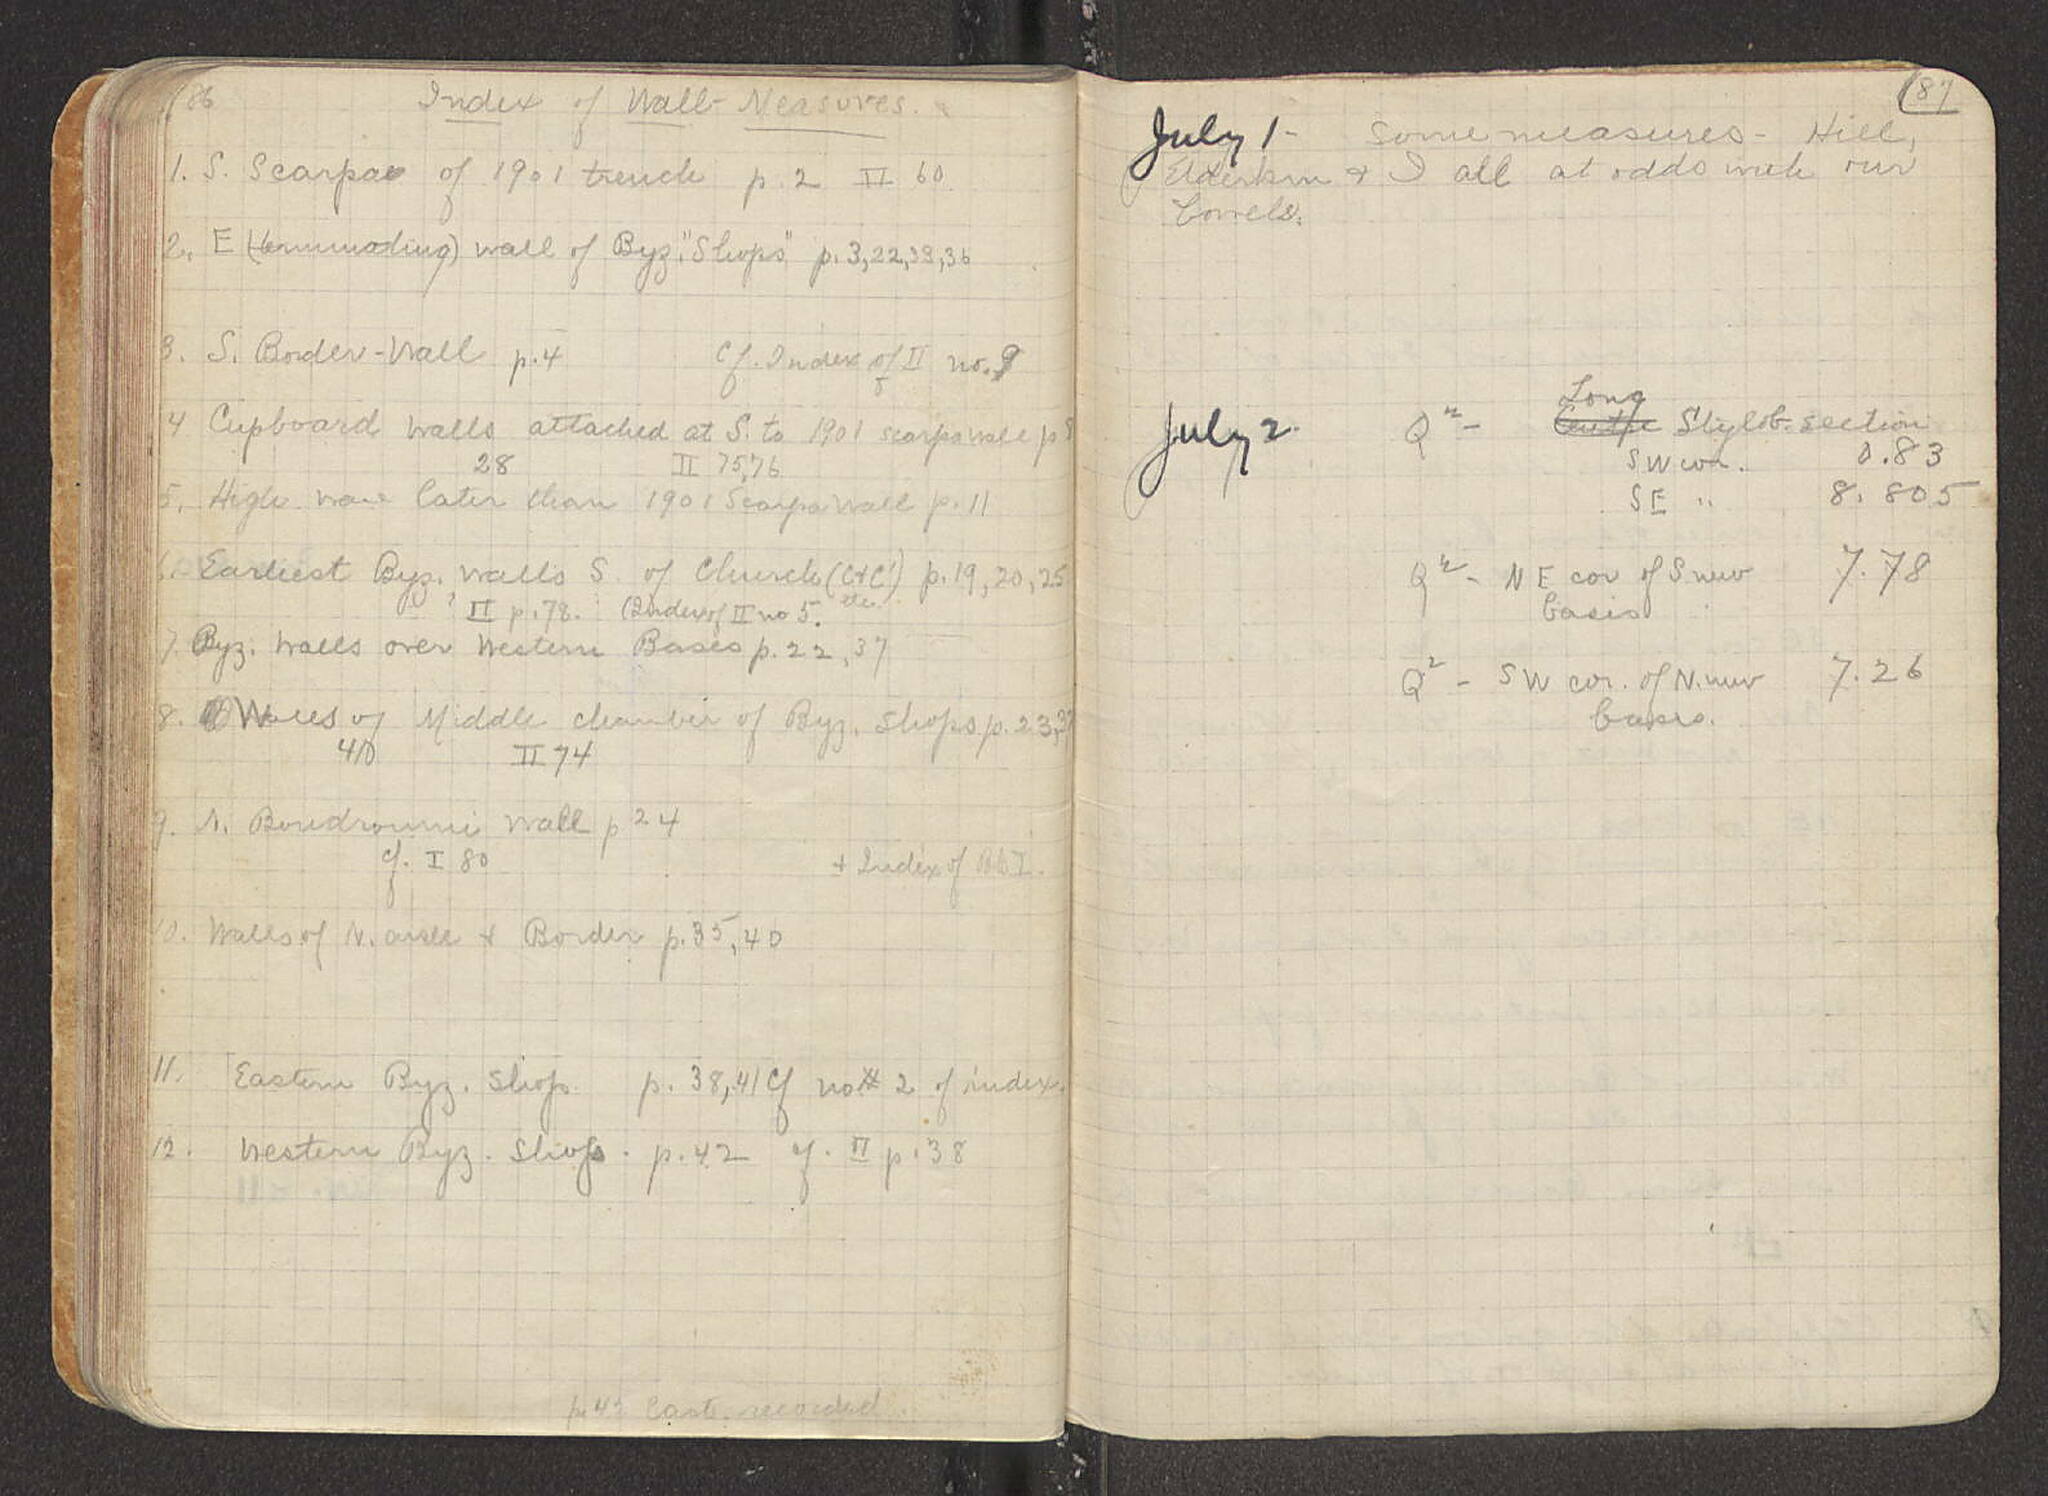 86
Index of Wall-Measures.
1. S. Scarpa of 1901 trench p. 2 II 60
2. E (terminating) wall of Byz. "Shops" p. 3, 22, 38, 36
3. S. Border-Wall p. 4 Cf. Index of II no. 9
4 Cupboard walls attached at S. to 1901 scarpa wall p 8
28 II 75, 76
5. High wall later than 1901 Scarpa wall p. 11
6. Earliest Byz. walls S. of Church (C+C') p. 19, 20, 25
? II p. 78. (Index of II no 5. etc.
7. Byz. Walls over Western Bases p. 22, 37
8. Walls of Middle chamber of Byz. Shops p. 23, 37
40 II 74
9. N. Boudroumi Wall p 24
cf. I 80 + Index of Bk I.
10. Walls of N. aisle + Border p. 35, 40
11. Eastern Byz. Shops p. 38, 41 Cf no 2 of index.
12. Western Byz. Shops. p. 42 cf. II p. 38
p. 43 recorded.
87
July 1 - Some measures - Hill,
Elderkin + I all at odds with our
bowels.
July 2. Q² - Long
Centre Stylob. section
SW cor. 0.83
SE " 8.805
Q² - NE cor of S nuw 7.78
basis
Q² - SW cor. of N. nuw 7.26
basis.